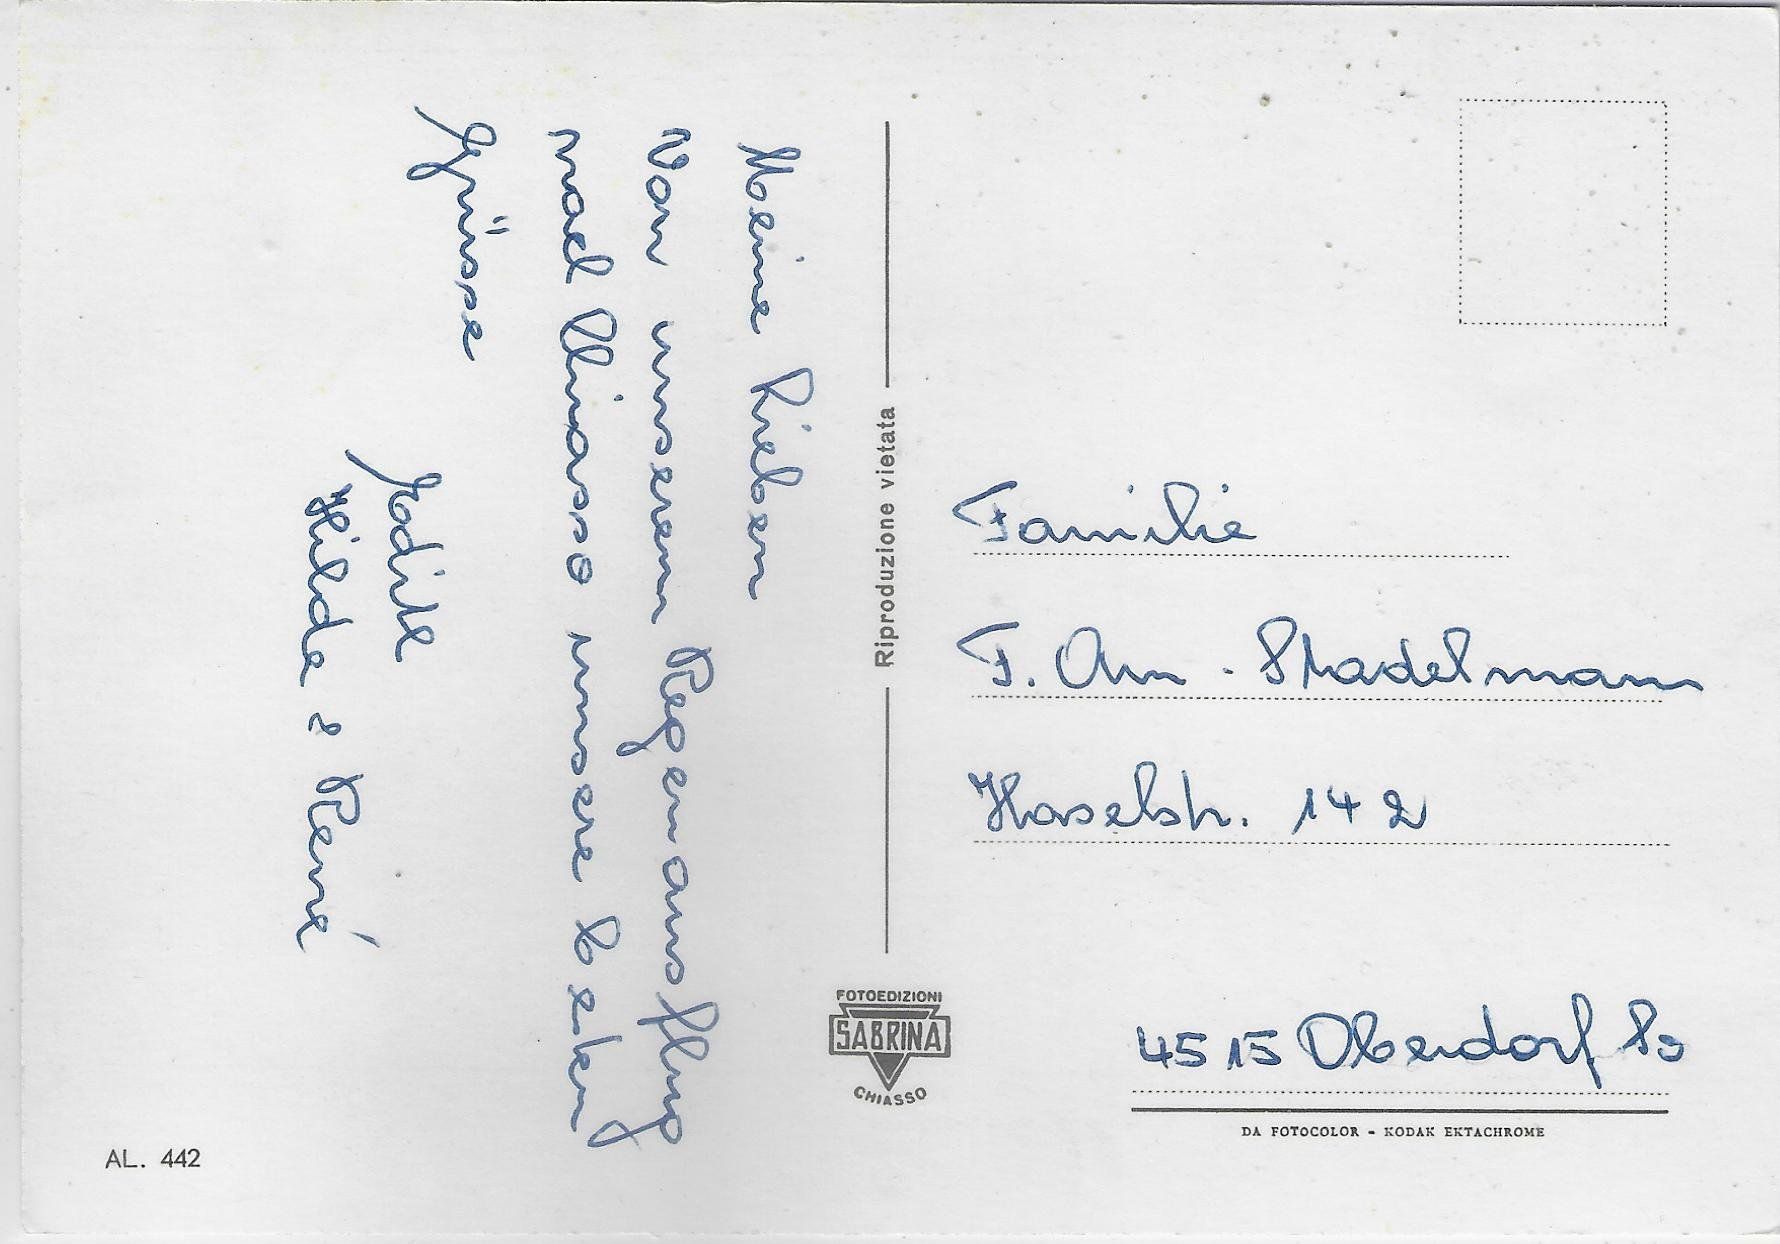 Meine Lieben
Von unserem Regenausflug
nach Chiasso unsere besten
Grüsse
Edith
Hilde & René
Riproduzione vietata
FOTOEDIZIONI
SABRINA
CHIASSO
Familie
F. Am - Stadelmann
Haselstr. 142
4515 Oberdorf So
DA FOTOCOLOR - KODAK EKTACHROME
AL. 442